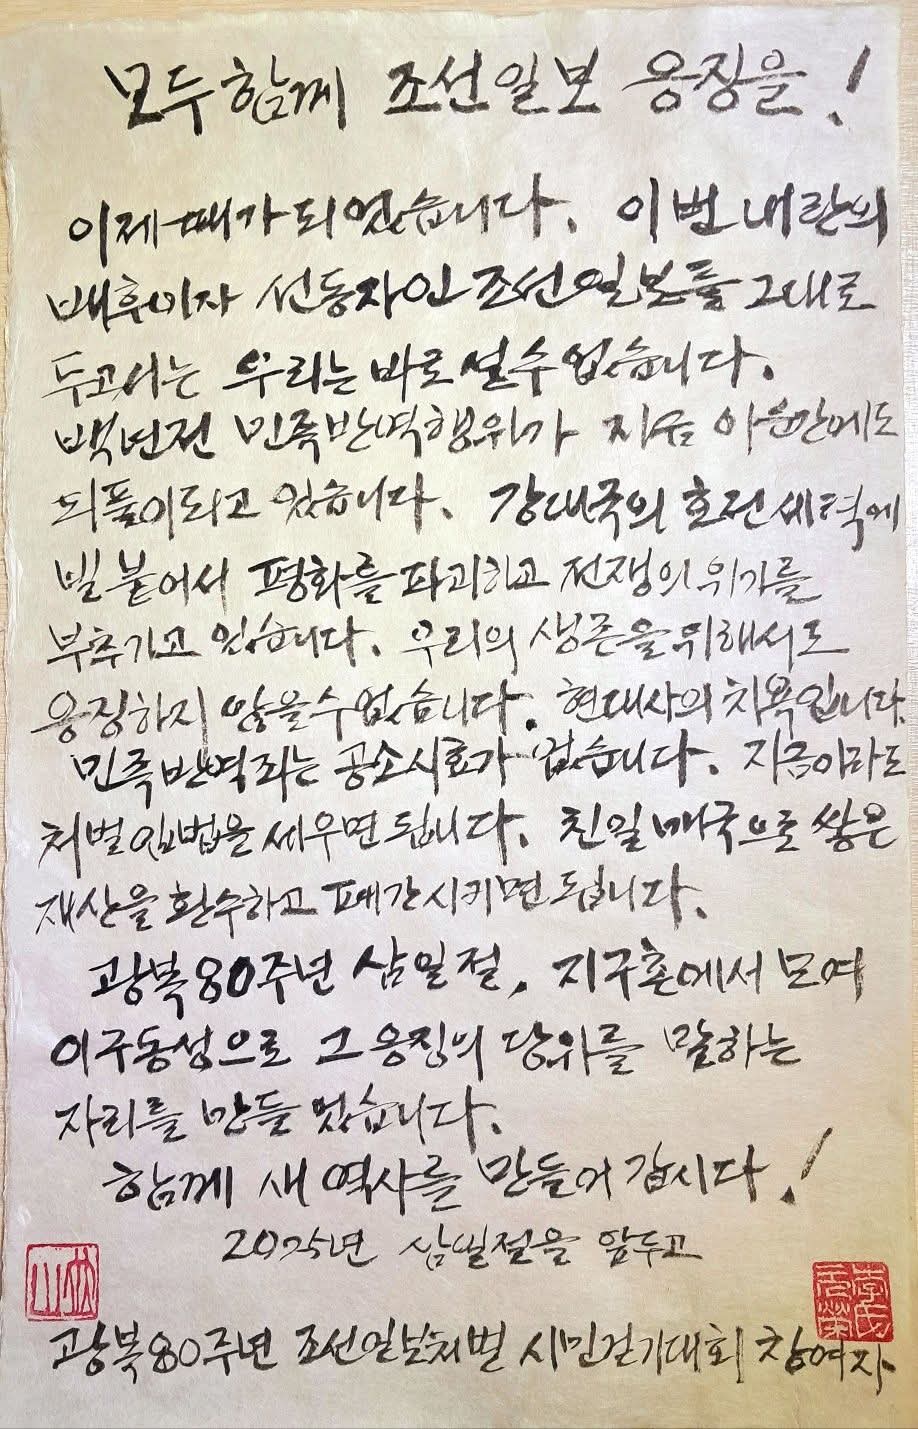 모두 함께 조선일보 응징을!
이제 때가 되었습니다. 이번 내란의
배후이자 선동자인 조선일보를 그대로
두고서는 우리는 바로 설 수 없습니다.
백년전 민족반역행위가 지금 이순간에도
되풀이되고 있습니다. 강대국의 호전세력에
빌붙어서 평화를 파괴하고 전쟁의 위기를
부추기고 있습니다. 우리의 생존을 위해서도
응징하지 않을 수 없습니다. 현대사의 치욕입니다.
민족반역죄는 공소시효가 없습니다. 지금이라도
처벌입법을 세우면 됩니다. 친일매국으로 쌓은
재산을 환수하고 폐간시키면 됩니다.
광복80주년 삼일절, 지구촌에서 모여
이구동성으로 그 응징의 당위를 말하는
자리를 만들었습니다.
함께 새 역사를 만들어 갑시다!
2025년 삼일절을 앞두고
광복80주년 조선일보처벌 시민걷기대회 참여자